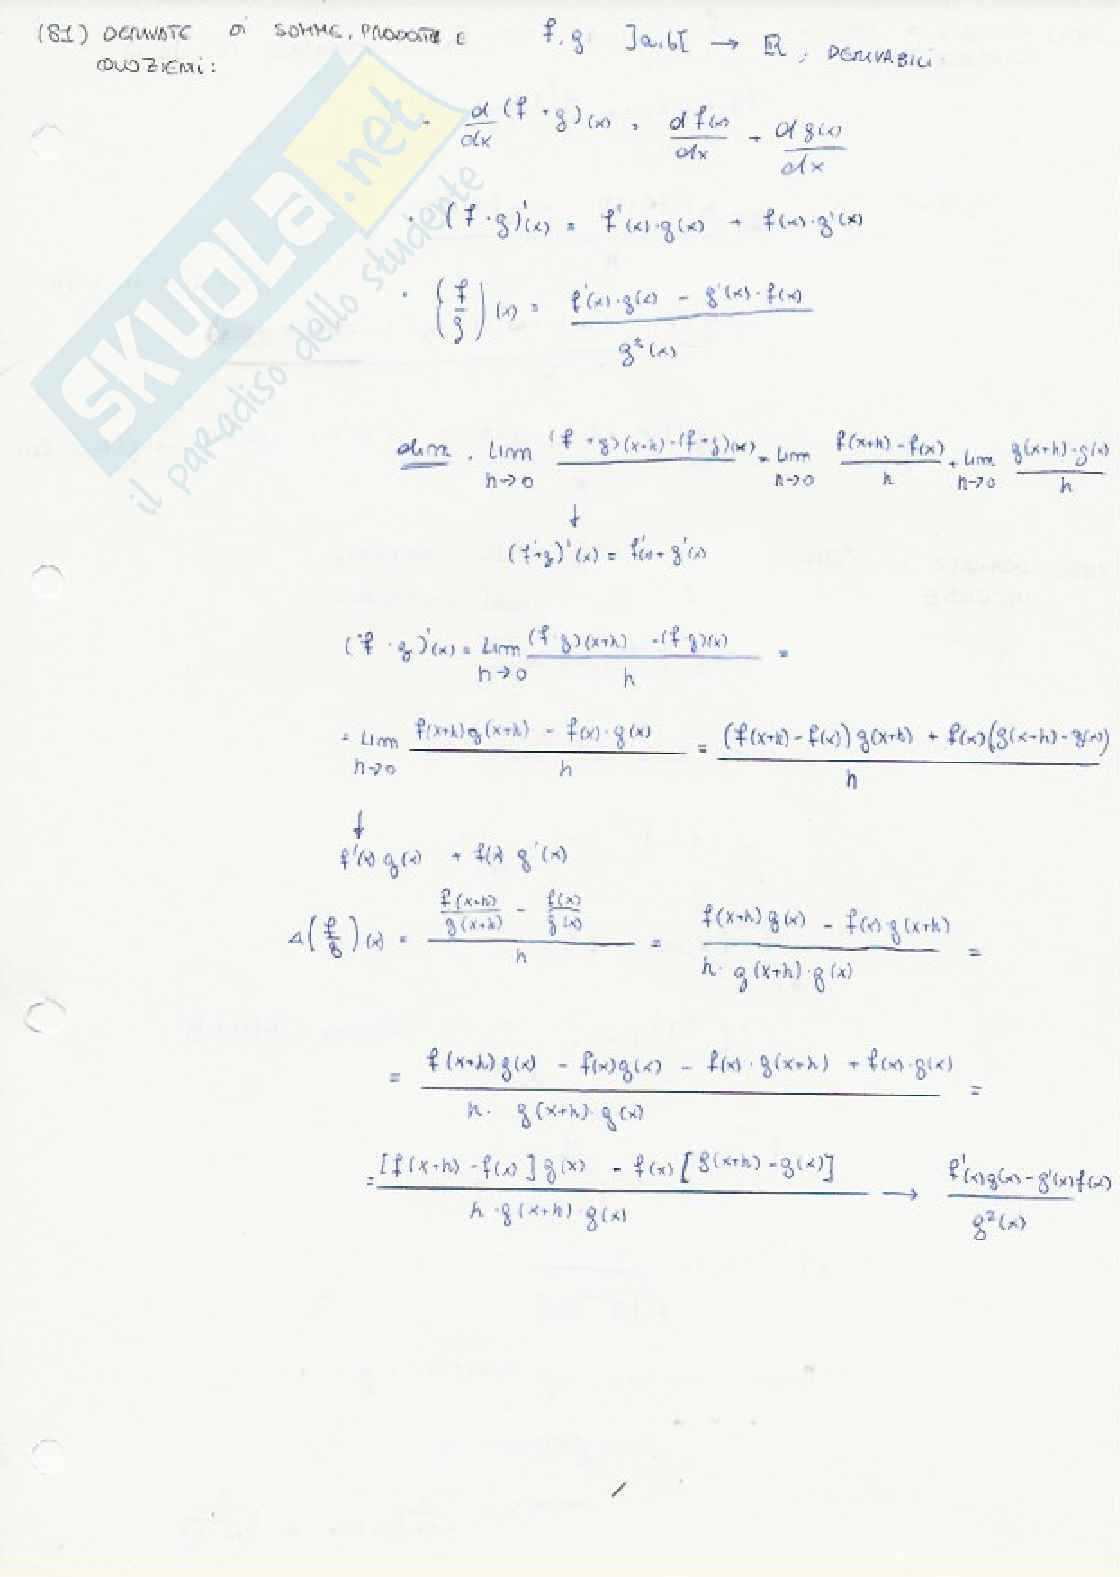 (81) DERIVATE DI SOMME, PRODOTTI E f, g: ]a,b[ → ℝ, DERIVABILI
QUOZIENTI:
SKUOLA.net
il paradiso dello studente
- d/dx (f + g)(x) = d f(x)/dx + d g(x)/dx
· (f · g)'(x) = f'(x)·g(x) + f(x)·g'(x)
· (f/g)(x) = (f'(x)·g(x) - g'(x)·f(x)) / g²(x)
dim. lim h→0 (f + g)(x+h) - (f + g)(x) = lim h→0 (f(x+h) - f(x))/h + lim h→0 (g(x+h) - g(x))/h
↓
(f+g)'(x) = f'(x) + g'(x)
(f · g)'(x) = lim h→0 ((f·g)(x+h) - (f·g)(x))/h =
= lim h→0 (f(x+h)g(x+h) - f(x)·g(x))/h = ((f(x+h) - f(x))g(x+h) + f(x)(g(x+h) - g(x)))/h
↓
f'(x) g(x) + f(x) g'(x)
Δ(f/g)(x) = (f(x+h)/g(x+h) - f(x)/g(x))/h = (f(x+h)g(x) - f(x)·g(x+h))/(h·g(x+h)·g(x)) =
= (f(x+h)g(x) - f(x)g(x) - f(x)·g(x+h) + f(x)·g(x))/(h· g(x+h)·g(x)) =
= ([f(x+h) - f(x)]g(x) - f(x)[g(x+h) - g(x)])/(h·g(x+h)·g(x)) → (f'(x)g(x) - g'(x)f(x))/g²(x)